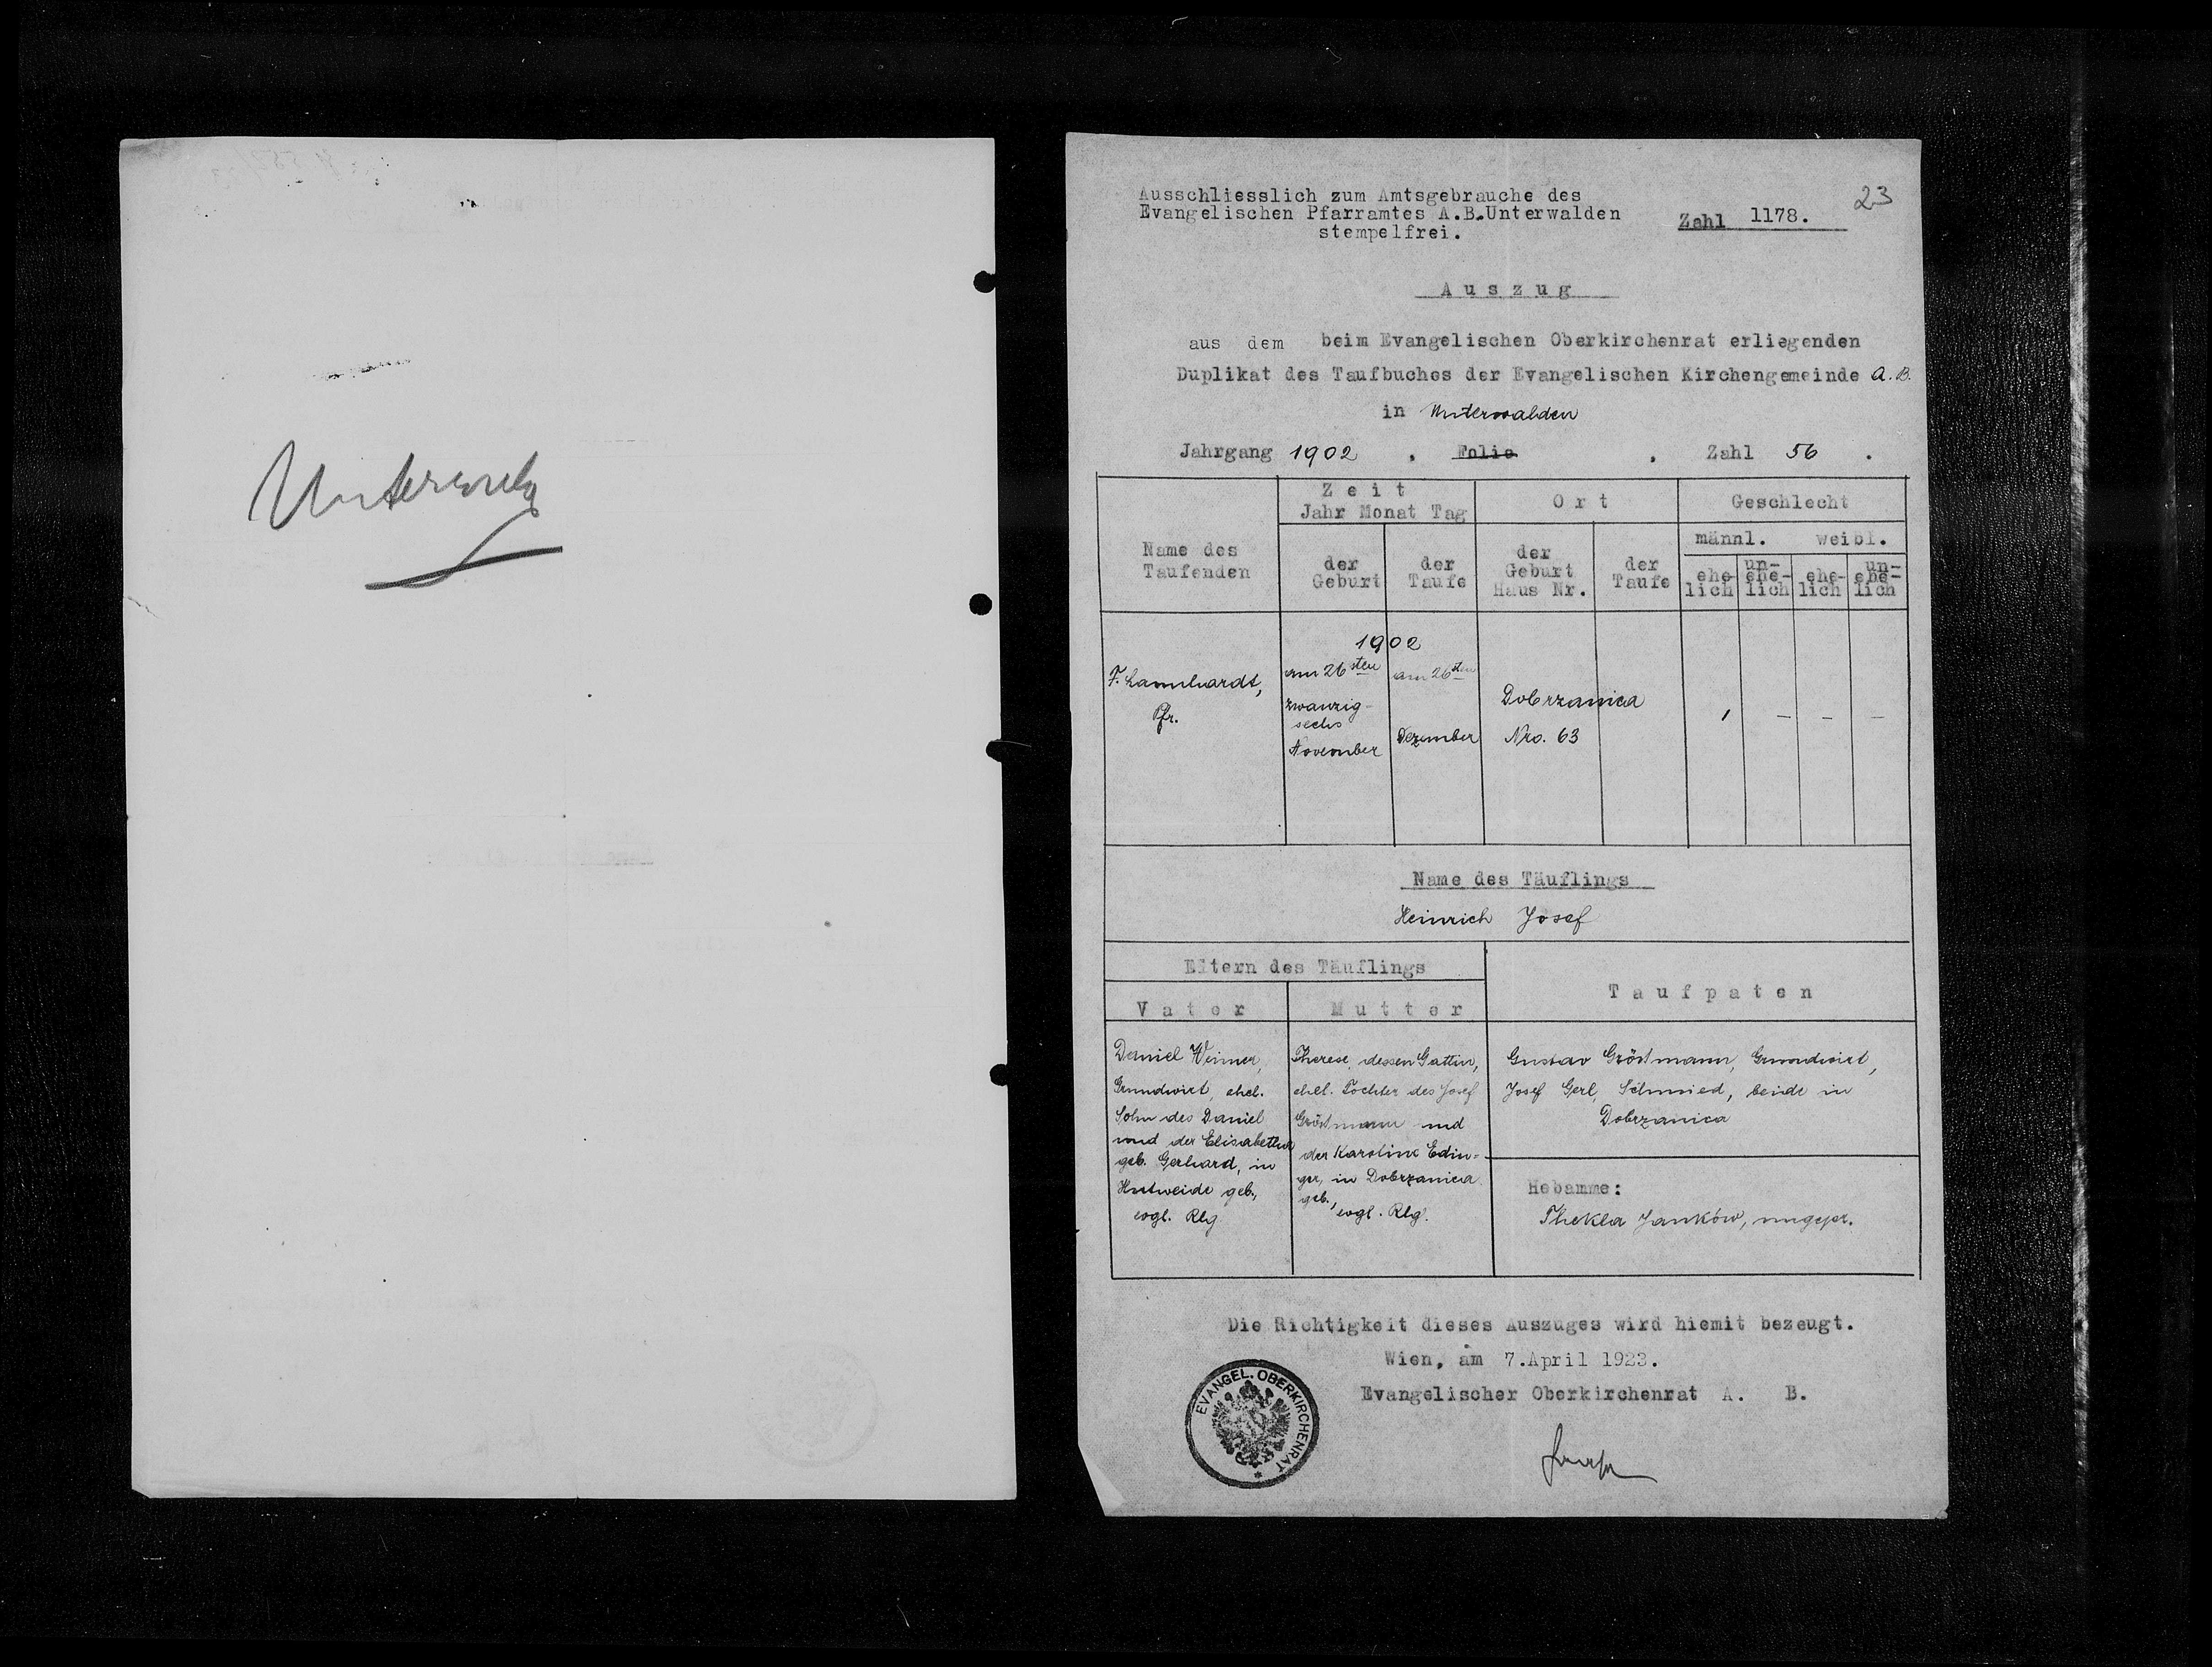 Unterwald
Ausschliesslich zum Amtsgebrauche des
Evangelischen Pfarramtes A.B.Unterwalden
stempelfrei.
Zahl 1178.
23
Auszug
aus dem beim Evangelischen Oberkirchenrat erliegenden
Duplikat des Taufbuches der Evangelischen Kirchengemeinde A.B.
in Unterwalden
Jahrgang 1902 , Folio , Zahl 56 .
Name des
Taufenden
Zeit
Jahr Monat Tag
der
Geburt
der
Taufe
Ort
der
Geburt
Haus Nr.
der
Taufe
Geschlecht
männl. weibl.
ehe-
lich
un-
ehe-
lich
ehe-
lich
un-
ehe-
lich
F. Lamhardt,
Pfr.
1902
am 26sten
zwanzig-
sechs
November
am 26sten
Dezember
Dobrzanica
Nro. 63
1 – – –
Name des Täuflings
Heinrich Josef
Eltern des Täuflings
Vater
Mutter
Taufpaten
Daniel Weimer,
Grundwirt, ehel.
Sohn des Daniel
und der Elisabetha
geb. Gerhard, in
Hutweide geb.,
evgl. Rlg.
Therese, dessen Gattin,
ehel. Tochter des Josef
Gröstmann und
der Karoline Edin-
ger, in Dobrzanica
geb.,
evgl. Rlg.
Gustav Gröstmann, Grundwirt,
Josef Gerl, Schmied, beide in
Dobrzanica
Hebamme:
Thekla Janków, ungepr.
Die Richtigkeit dieses Auszuges wird hiemit bezeugt.
Wien, am 7.April 1923.
Evangelischer Oberkirchenrat A. B.
EVANGEL. OBERKIRCHENRAT